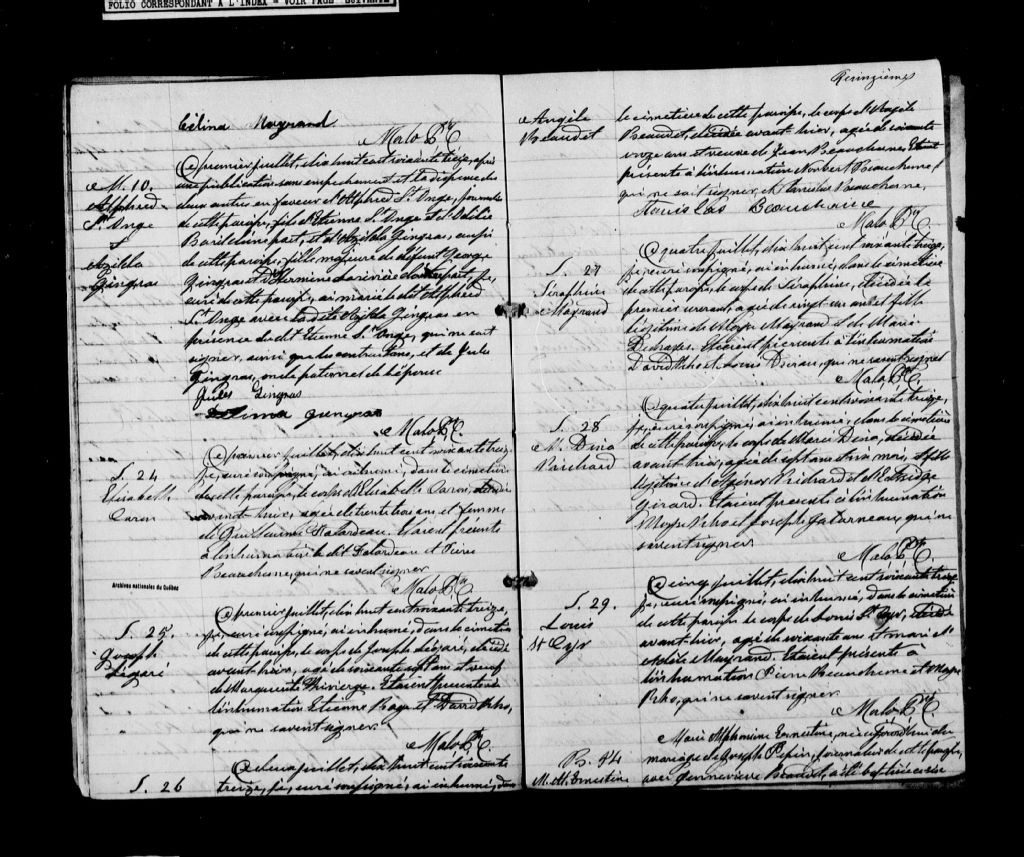 FOLIO CORRESPONDANT A L'INDEX = VOIR PAGE SUIVANTE
Célina Mayrand
Malo Ptre C.
M. 10.
Alfred
St Onge
&
Azilda
Gingras
Ce premier juillet, dix huit cent soixante treize, après
une publication sans empêchement et la dispense de
deux autres en faveur d'Alfred St. Onge, journalier
de cette paroisse, fils d'Etienne St Onge et d'Odélie
Baril d'une part, et d'Azilda Gingras, aussi
de cette paroisse, fille majeure de défunt George
Gingras et d'Hermine d'autre part, je,
curé de cette paroisse, ai marié le dit Alfred
St. Onge avec la dite Azilda Gingras en
présence du dit Etienne St. Onge, qui ne sait
signer, ainsi que les contractants, et de Jules
Gingras, oncle paternel de l'épouse
Jules Gingras
Gingras
Malo Ptre C.
S. 24
Elisabeth
Caron
Ce premier juillet, dix huit cent soixante treize,
je, curé soussigné, ai inhumé, dans le cimetière
de cette paroisse, le corps d'Elisabeth Caron, décédée
avant hier, agée de trente trois ans et femme
de Guillaume Falardeau. Etaient présents
à l'inhumation le dit Falardeau et Pierre
Beauchene, qui ne savent signer
Malo Ptre C.
Archives nationales du Québec
S. 25.
Joseph
Légaré
Ce premier juillet, dix huit cent soixante treize,
je, curé soussigné, ai inhumé, dans le cimetière
de cette paroisse, le corps de Joseph Légaré, décédé
avant hier, agé de soixante sept ans et veuf
de Marguerite Thivierge. Etaient présents à
l'inhumation Etienne Page et David Rho,
qui ne savent signer.
Malo Ptre C.
S. 26
Ce deux juillet, dix huit cent soixante
treize, je, curé soussigné, ai inhumé, dans
Angèle
Beaudet
le cimetière de cette paroisse, le corps d'Angèle
Beaudet, décédée avant hier, agée de soixante
onze ans et veuve de Jean Beauchene. Etaient
présents à l'inhumation Norbert Beauchene,
qui ne sait signer, et Stanislas Beauchesne,
Stanislas Beauchaine
Malo Ptre C.
S. 27
Séraphine
Mayrand
Ce quatre juillet, dix huit cent soixante treize,
je, curé soussigné, ai inhumé, dans le cimetière
de cette paroisse, le corps de Séraphine, décédée le
premier courant, agée de vingt un ans et fille
légitime de Moyse Mayrand et de Marie
Desrosiers. Etaient présents à l'inhumation
David Rho et Louis, qui ne savent signer
Malo Ptre C.
S. 28
M. Dina
Prichard
Ce quatre juillet, dix huit cent soixante treize,
je, curé soussigné, ai inhumé, dans le cimetière
de cette paroisse, le corps de Marie Dina, décédée
avant hier, agée de sept ans et six mois, et fille
légitime d'Agénor Prichard et d'
Girard. Etaient présents à l'inhumation
Moyse Rho et Joseph Galarneau, qui ne
savent signer
Malo Ptre C.
S. 29.
Louis
St Cyr
Ce cinq juillet, dix huit cent soixante treize,
je, curé soussigné, ai inhumé, dans le cimetière
de cette paroisse le corps de Louis St Cyr, décédé
avant hier, agé de soixante ans et mari d'
Adèle Mayrand. Etaient présents à
l'inhumation Pierre Beauchene et Moyse
Rho, qui ne savent signer
Malo Ptre C.
B. 84
M. A. Ernestine
Marie Alphonsine Ernestine, née du
mariage de Joseph Pepin, journalier de cette paroisse,
avec Geneviève Beaudet, a été baptisée ce six